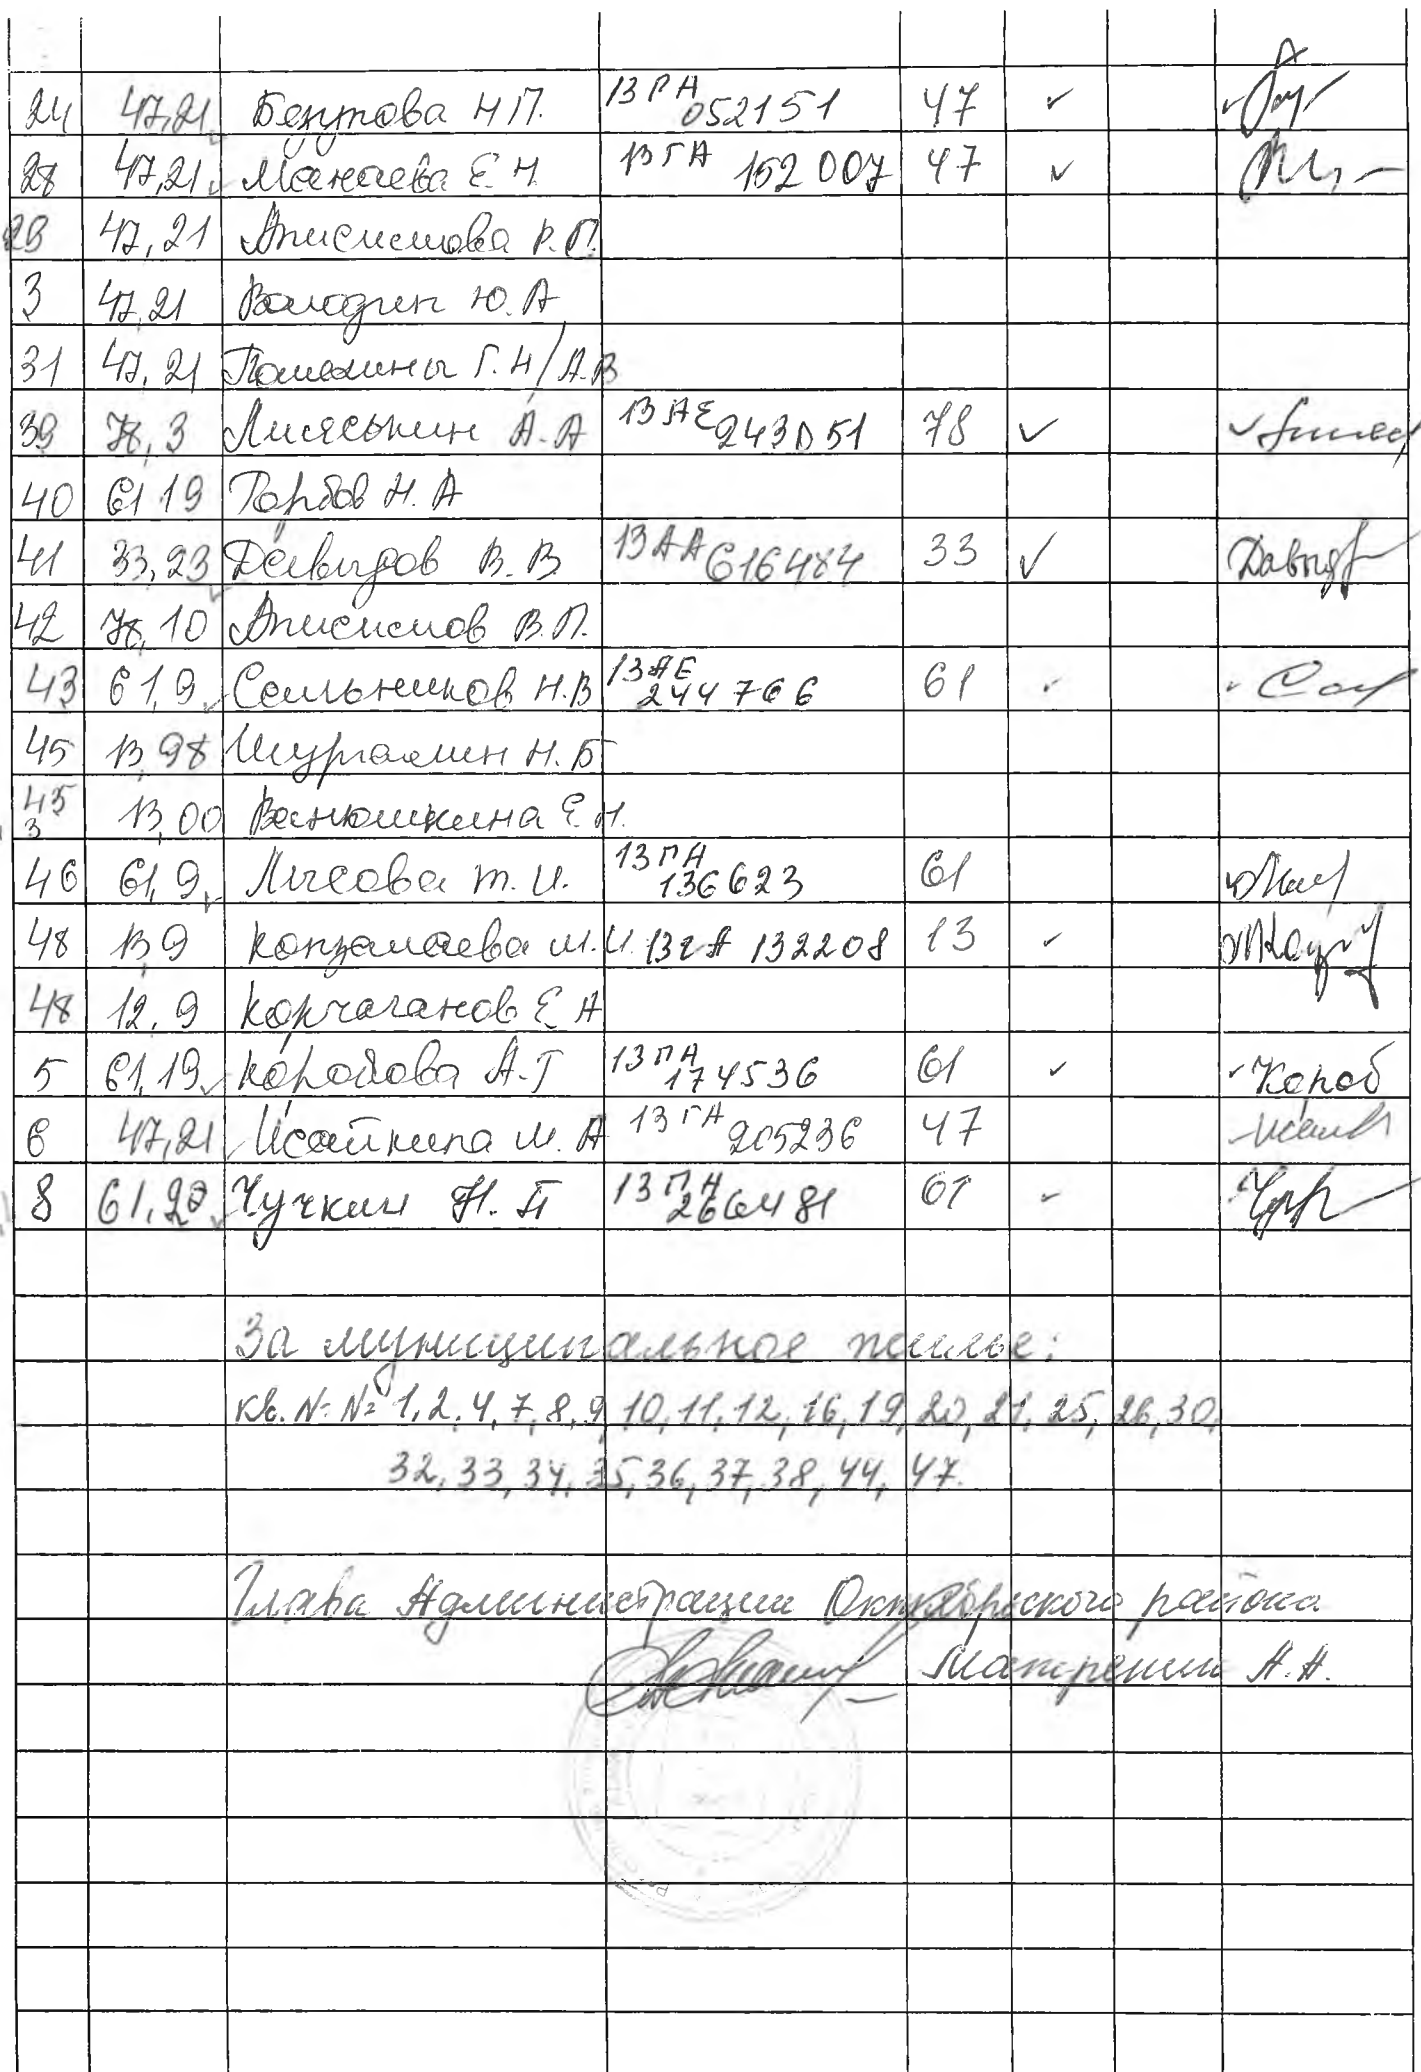 24 47,21 Безутова Н.П. 13 РА 052151 47 ✓
28 47,21 Манаева Е.Н. 13 ГА 152 007 47 ✓
29 47,21 Анисимова Р.П.
3 47,21 Володин Ю.А
31 47,21 Г.Н/А.В
39 78,3 Лисяськин А.А 13 АЕ 243051 78 ✓
40 61,19 Горбов Н.А
41 33,23 Давыдов В.В. 13 АА 616484 33 ✓ Давыд
42 78,10 Анисимов В.П.
43 61,9 Сальников Н.В 13 АЕ 244766 61 ✓
45 13,98 Н.Б
45 3 13,00 Ванюшкина Е.Н.
46 61,9 Лысова Т.И. 13 ПА 136623 61
48 13,9 М.И. 13 ГА 132208 13 ✓
48 12,9 Корчаганов Е А
5 61,19 Коробова А.Г 13 ПА 174536 61 ✓ Короб
6 47,21 Исайкина М.А 13 ГА 205236 47
8 61,20 Чучкин Н.П 13 ПА 266481 61 ✓
За муниципальное жилье:
кв. № № 1, 2, 4, 7, 8, 9, 10, 11, 12, 16, 19, 20, 21, 25, 26, 30,
32, 33, 34, 35, 36, 37, 38, 44, 47.
Глава Администрации Октябрьского района
Макрецкий А.А.